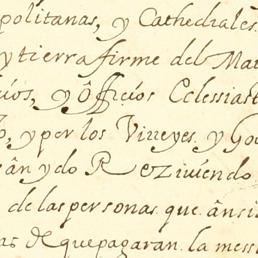 politanas, y Cathedrales
y tierra firme del Mar
cios, y Officios Eclesiast
o, y por los Virreyes y Go
an ydo Reziuiendo
de las personas que ansi
as de que pagaran la mess